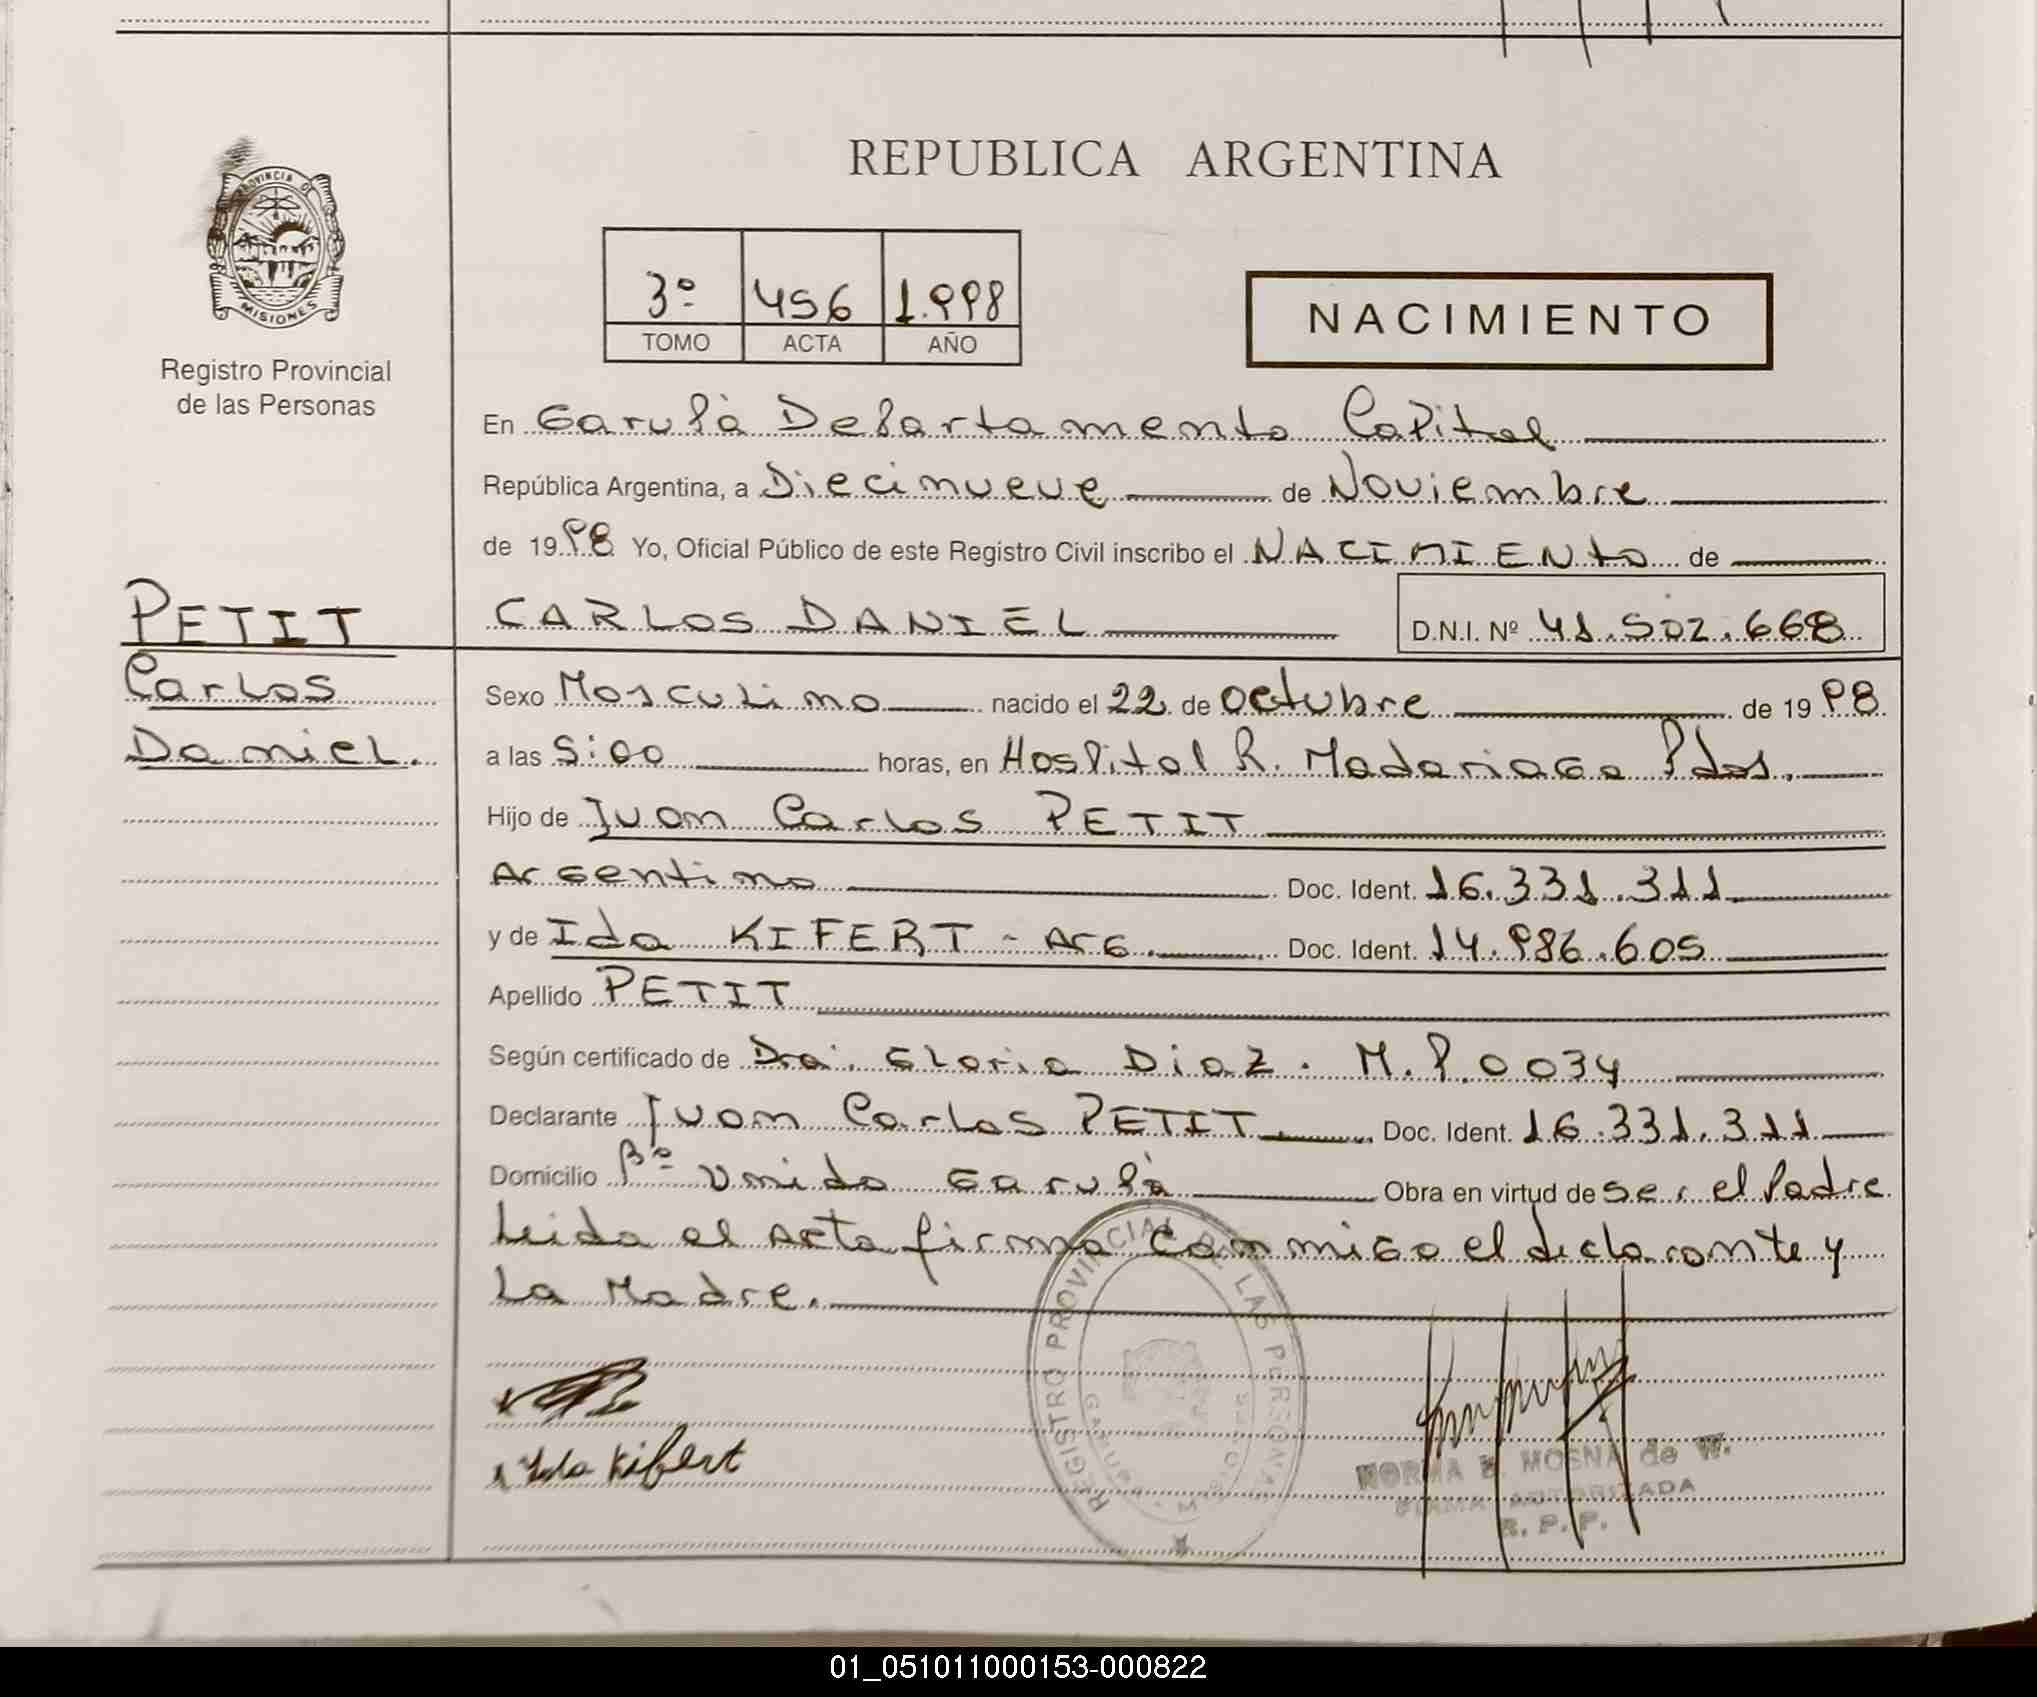 REPUBLICA ARGENTINA
PROVINCIA DE
MISIONES
Registro Provincial
de las Personas
3º 456 1.998
TOMO ACTA AÑO
NACIMIENTO
En Garupá Departamento Capital
República Argentina, a Diecinueve de Noviembre
de 1998 Yo, Oficial Público de este Registro Civil inscribo el NACIMIENto de
PETIT
Carlos
Daniel.
CARLOS DANIEL D.N.I. Nº 41.502.668
Sexo Masculino nacido el 22 de octubre de 1998
a las 5:00 horas, en Hospital R. Madariaga Pdas.
Hijo de Juan Carlos PETIT
Argentino Doc. Ident. 16.331.311
y de Ida KIFERT - Arg. Doc. Ident. 14.986.605
Apellido PETIT
Según certificado de Dra. Gloria Diaz. M.P.0034
Declarante Juan Carlos PETIT. Doc. Ident. 16.331.311
Domicilio Bº Unido Garupá Obra en virtud de ser el Padre
Leida el acta firma conmigo el declarante y
La Madre.
REGISTRO PROVINCIAL DE LAS PERSONAS
GARUPA - MISIONES
Ida Kifert
NORMA B. MOSNA de W.
FIRMA AUTORIZADA
R. P. P.
01_051011000153-000822